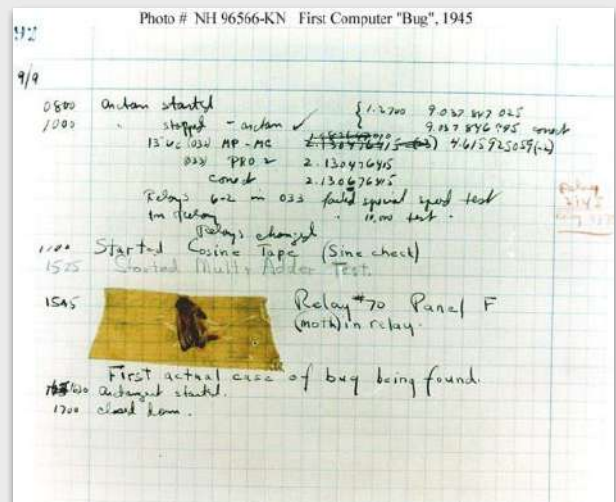 Photo # NH 96566-KN First Computer "Bug", 1945
92
9/9
0800 antan started
1000 " stopped - antan ✓ { 1.2700 9.037 847 025
9.037 846 995 conect
13"uc (032) MP-MC 2.130476415 (-3) 4.615925059(-2)
(033) PRO 2 2.130476415
conect 2.130676415
Relays 6-2 in 033 failed special speed test
in Relay " 10.000 test.
Relays changed
1100 Started Cosine Tape (Sine check)
1525 Started Mult+Adder Test.
1545 Relay #70 Panel F
(moth) in relay.
First actual case of bug being found.
1630 antangent started.
1700 closed down.